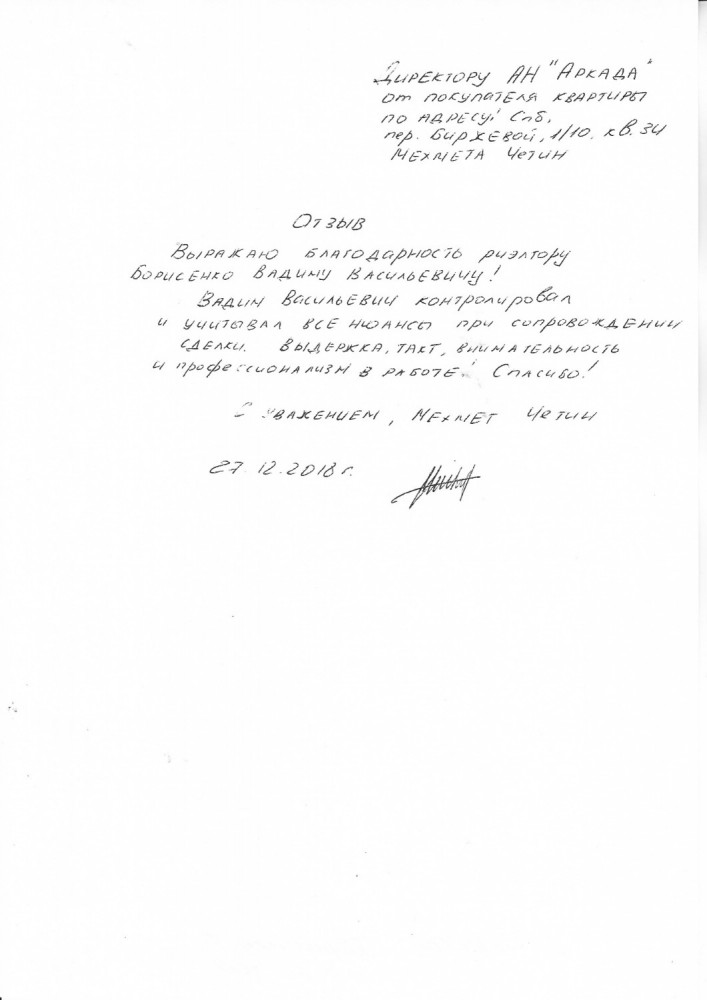 Директору АН "Аркада"
от покупателя квартиры
по адресу: Спб,
пер. Биржевой, 1/10. кв. 34
Мехмета Четин
Отзыв
Выражаю благодарность риэлтору
Борисенко Вадиму Васильевичу!
Вадим Васильевич контролировал
и учитывал все нюансы при сопровождении
сделки. Выдержка, такт, внимательность
и профессионализм в работе! Спасибо!
С уважением, Мехмет Четин
27.12.2018 г.